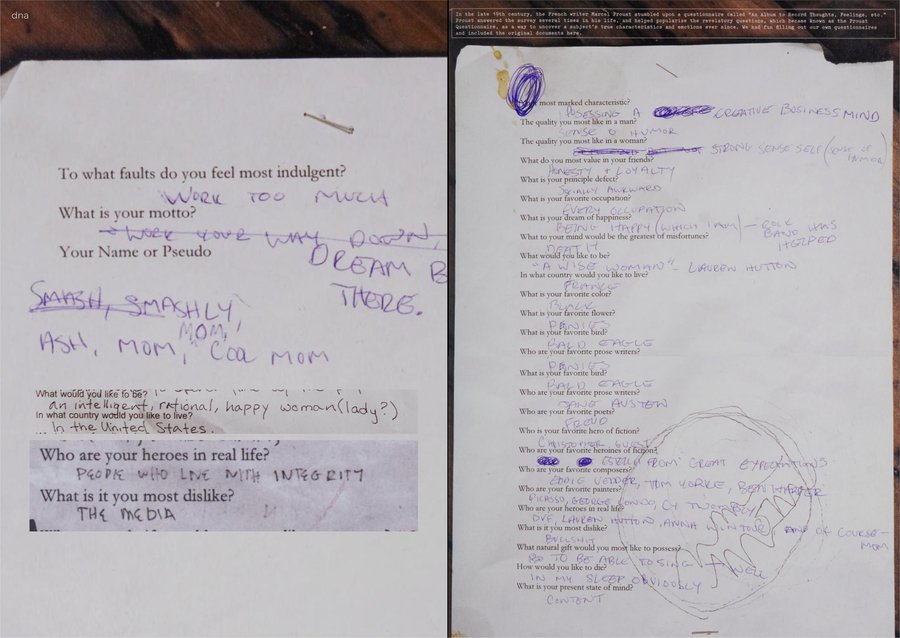 dna
To what faults do you feel most indulgent?
WORK TOO MUCH
What is your motto?
WORK YOUR WAY DOWN,
Your Name or Pseudo
DREAM B
THERE.
SMASH, SMASHLY,
MOM,
ASH, MOM, COOL MOM
What would you like to be?
an intelligent, rational, happy woman (lady?)
In what country would you like to live?
... In the United States.
Who are your heroes in real life?
PEOPLE WHO LIVE WITH INTEGRITY
What is it you most dislike?
THE MEDIA
In the late 19th century, the French writer Marcel Proust stumbled upon a questionnaire called "An Album to Record Thoughts, Feelings, etc."
Proust answered the survey several times in his life, and helped popularize the revelatory questions, which became known as the Proust
Questionnaire, as a way to uncover a subject's true characteristics and emotions ever since. We had fun filling out our own questionnaires
and included the original documents here.
most marked characteristic?
POSSESSING A CREATIVE BUSINESS MIND
The quality you most like in a man?
SENSE OF HUMOR
The quality you most like in a woman?
STRONG SENSE SELF (SENSE OF HUMOR)
What do you most value in your friends?
HONESTY + LOYALTY
What is your principle defect?
SOCIALLY AWKWARD
What is your favorite occupation?
EVERY OCCUPATION
What is your dream of happiness?
BEING HAPPY (WHICH I AM) - ROCK BAND HAS HELPED
What to your mind would be the greatest of misfortunes?
DEATH
What would you like to be?
"A WISE WOMAN" - LAUREN HUTTON
In what country would you like to live?
FRANCE
What is your favorite color?
BLACK
What is your favorite flower?
PENIES
What is your favorite bird?
BALD EAGLE
Who are your favorite prose writers?
PENIES
What is your favorite bird?
BALD EAGLE
Who are your favorite prose writers?
JANE AUSTEN
Who are your favorite poets?
FREUD
Who is your favorite hero of fiction?
CHRISTOPHER GUEST
Who are your favorite heroines of fiction?
FROM GREAT EXPECTATIONS
Who are your favorite composers?
EDDIE VEDDER, TOM YORKE, BEN HARPER
Who are your favorite painters?
PICASSO, GEORGE CONDO, CY TWOMBLY
Who are your heroes in real life?
DVF, LAUREN HUTTON, ANNA WINTOUR, AND OF COURSE - MOM
What is it you most dislike?
BULLSHIT
What natural gift would you most like to possess?
TO BE ABLE TO SING WELL
How would you like to die?
IN MY SLEEP OBVIOUSLY
What is your present state of mind?
CONTENT